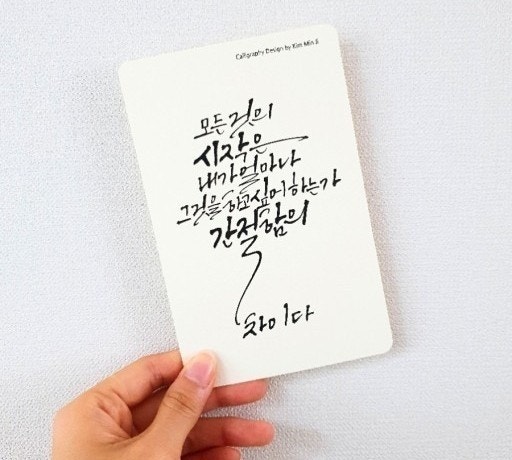 Calligraphy Design by Kim Min Ji
모든 것의
시작은
내가 얼마나
그것을 하고싶어하는가
간절함의
차이다